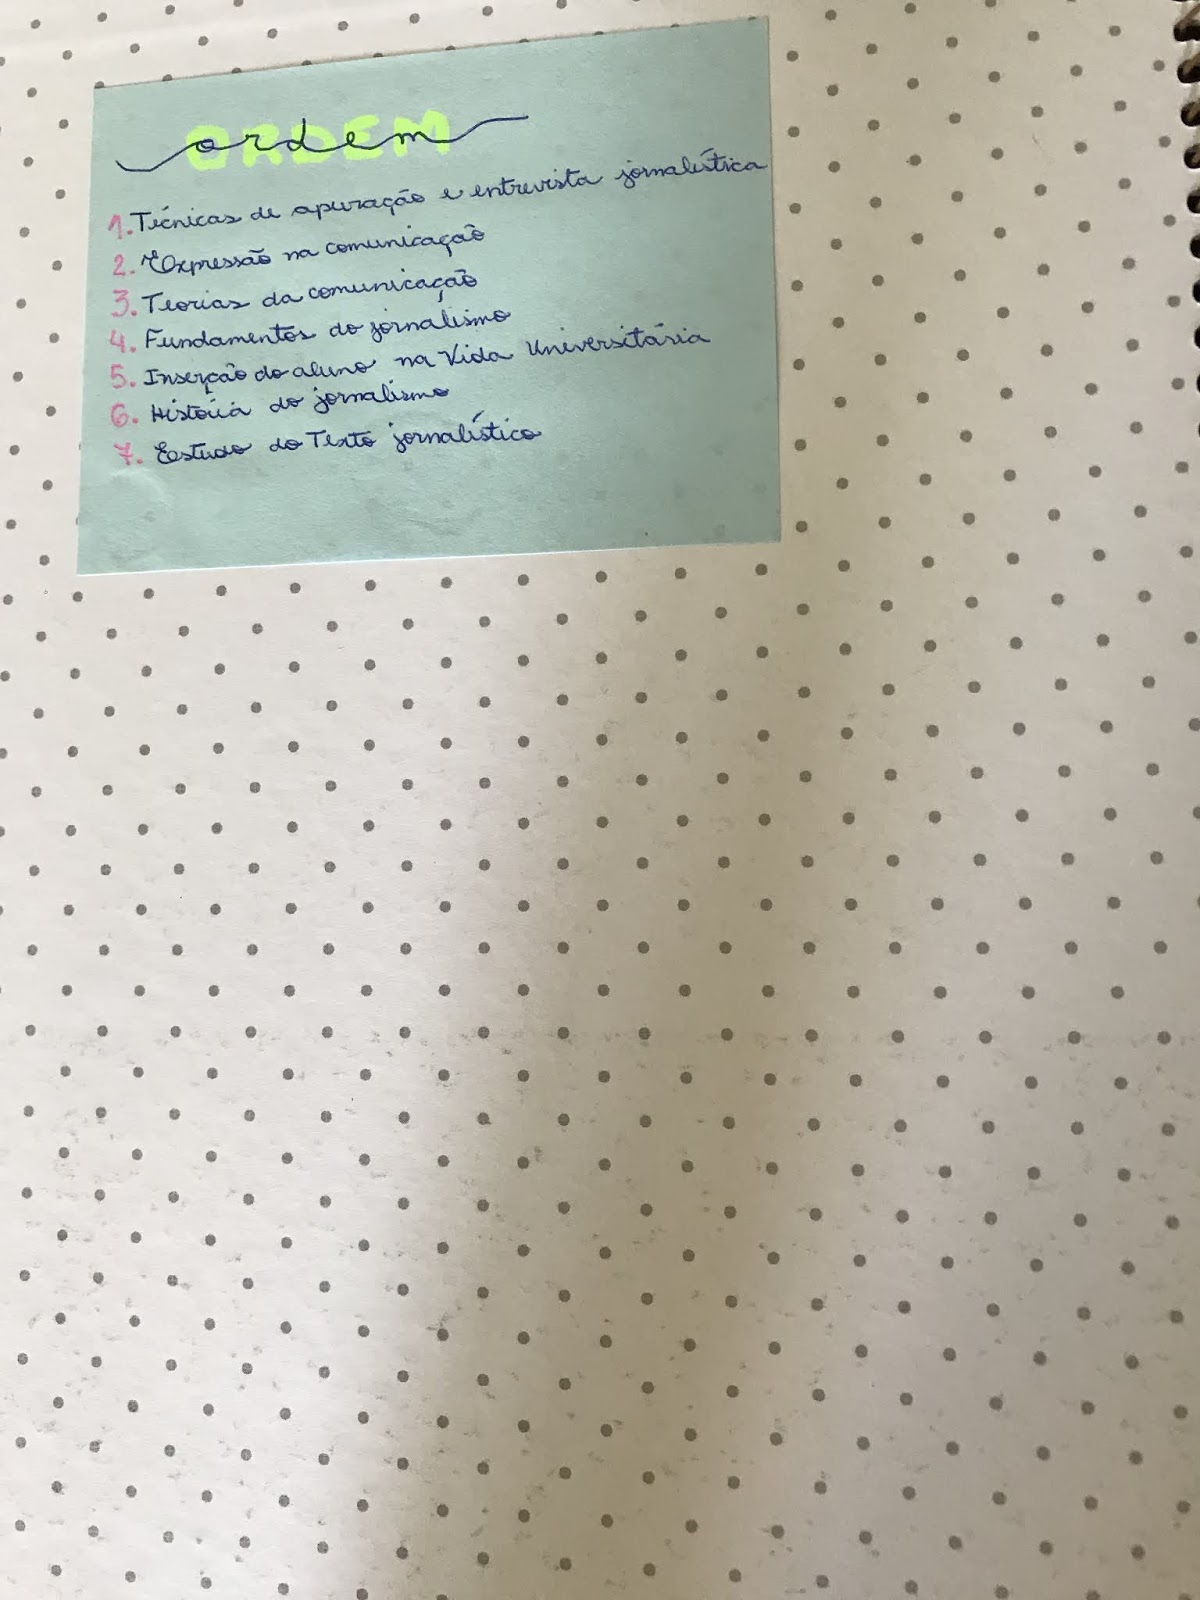 ORDEM
ordem
1. Técnicas de apuração e entrevista jornalística
2. Expressão na comunicação
3. Teorias da comunicação
4. Fundamentos do jornalismo
5. Inserção do aluno na Vida Universitária
6. História do jornalismo
7. Estudo do Texto jornalístico